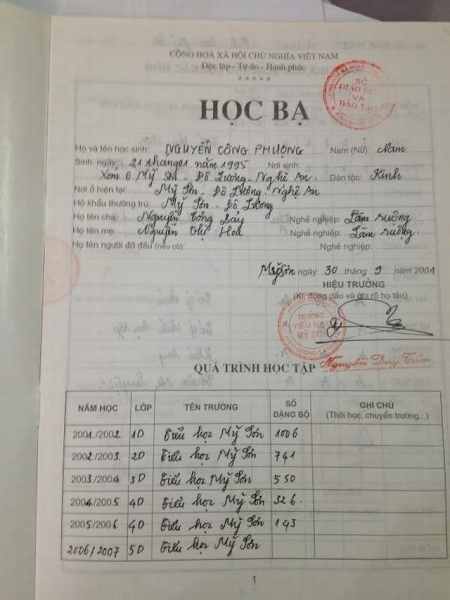 CỘNG HOÀ XÃ HỘI CHỦ NGHĨA VIỆT NAM
Độc lập - Tự do - Hạnh phúc
*****
SỞ GIÁO DỤC VÀ ĐÀO TẠO
HỌC BẠ
Họ và tên học sinh: NGUYỄN CÔNG PHƯỢNG Nam (Nữ): Nam
Sinh ngày: 21 tháng 1 năm 1995 Nơi sinh:
Xóm 6 Mỹ Sơn - Đô Lương - Nghệ An Dân tộc: Kinh
Nơi ở hiện tại: Mỹ Sơn - Đô Lương - Nghệ An
Hộ khẩu thường trú: Mỹ Sơn - Đô Lương
Họ tên cha: Nguyễn Công Bảy Nghề nghiệp: Làm ruộng
Họ tên mẹ: Nguyễn Thị Hoa Nghề nghiệp: Làm ruộng
Họ tên người đỡ đầu (nếu có): Nghề nghiệp:
Mỹ Sơn ngày 30 tháng 9 năm 2001
HIỆU TRƯỞNG
(Ký, đóng dấu và ghi rõ họ tên)
TRƯỜNG TIỂU HỌC MỸ SƠN
Nguyễn Duy
QUÁ TRÌNH HỌC TẬP
NĂM HỌC LỚP TÊN TRƯỜNG SỐ ĐĂNG BỘ GHI CHÚ (Thôi học, chuyển trường...)
2001/2002 1D Tiểu học Mỹ Sơn 1006
2002/2003 2D Tiểu học Mỹ Sơn 741
2003/2004 3D Tiểu học Mỹ Sơn 550
2004/2005 4D Tiểu học Mỹ Sơn 326
2005/2006 4D Tiểu học Mỹ Sơn 143
2006/2007 5D Tiểu học Mỹ Sơn
1